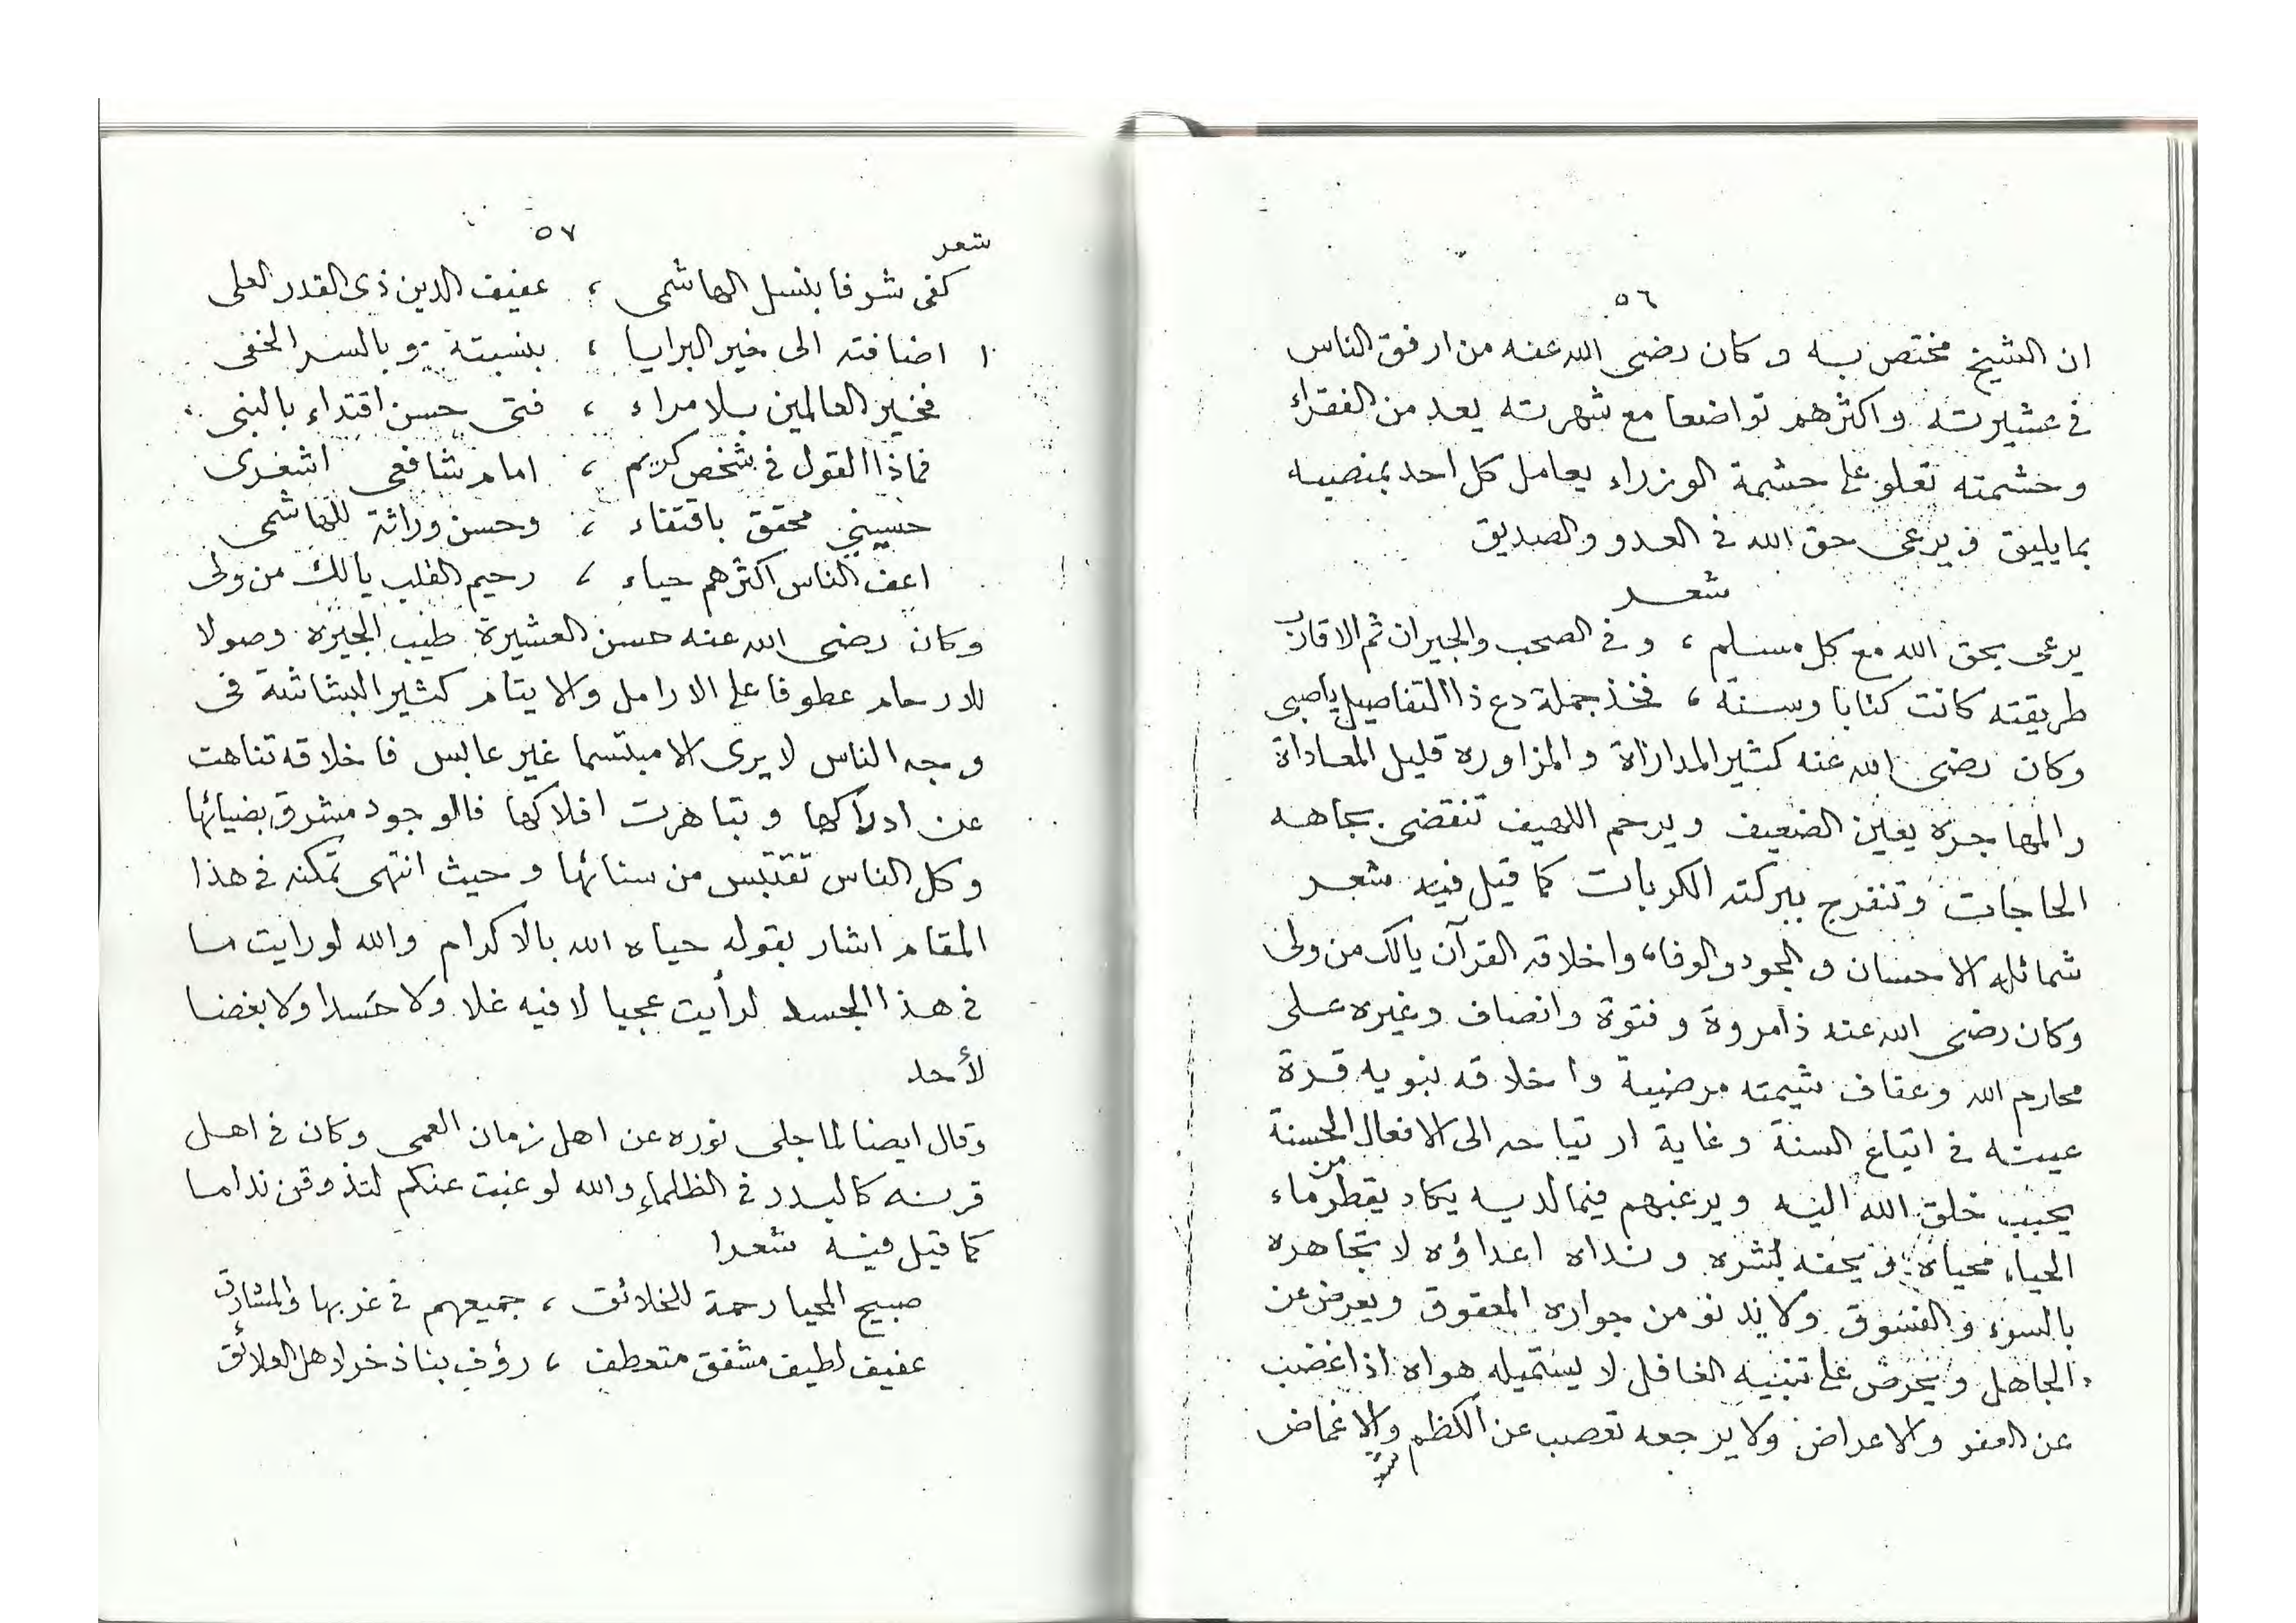 ٥٦
ان الشيخ مختص به وكان رضى الله عنه من ارفق الناس
فى عشيرته واكثرهم تواضعا مع شهرته يعد من الفقراء
وحشمته تعلو على حشمة الوزراء يعامل كل احد بمنصبه
بما يليق ويرعى حق الله فى العدو والصديق
شعر
يرعى بحق الله مع كل مسلم ، وفى الصحب والجيران ثم الاقارب
طريقته كانت كتابا وسنة ، فخذ جملة دع ذا التفاصيل ياصبى
وكان رضى الله عنه كثير المداراة والمزاوره قليل المعاداة
والمهاجره يعين الضعيف ويرحم اللهيف تنقضى بجاهه
الحاجات وتنفرج ببركته الكربات كما قيل فيه شعر
شمائله الاحسان والجود والوفا ، واخلاقه القرآن يالك من ولى
وكان رضى الله عنه ذا مروة وفتوة وانصاف وغيره على
محارم الله وعفاف شيمته مرضية واخلاقه نبويه قرة
عينه فى اتباع السنة وغاية ارتياحه الى الافعال الحسنة
يحبب خلق الله اليه ويرغبهم فيما لديه يكاد يقطر من ماء
الحياء محياه ويحفه بشره ونداه اعداؤه لا تجاهره
بالسوء والفسوق ولا يدنو من جواره المعقوق ويعرض عن
الجاهل ويحرص على تنبيه الغافل لا يستميله هواه اذا غضب
عن العفو والاعراض ولا يرجعه تعصب عن الكظم والاغماض
٥٧
شعر
كفى شرفا بنسل الهاشمى ، عفيف الدين ذى القدر العلى
اضافته الى خير البرايا ، بنسبته وبالسر الخفى
فخير العالمين بلا مراء ، فتى حسن اقتداء بالنبى
فماذا القول فى شخص كريم ، امام شافعى اشعرى
حسينى محقق باقتفاء ، وحسن وراثة للهاشمى
اعف الناس اكثرهم حياء ، رحيم القلب يالك من ولى
وكان رضى الله عنه حسن العشيرة طيب الجيره وصولا
للارحام عطوفا على الارامل والايتام كثير البشاشة فى
وجه الناس لا يرى الا مبتسما غير عابس فاخلاقه تناهت
عن ادراكها وتباهرت افلاكها فالوجود مشرق بضيائها
وكل الناس تقتبس من سنائها وحيث انتهى تمكنه فى هذا
المقام اشار بقوله حياه الله بالاكرام والله لو رايت ما
فى هذا الجسد لرأيت عجبا لا فيه غلا ولا حَسدا ولا بغضا
لأحد
وقال ايضا لما جلى نوره عن اهل زمان العمى وكان فى اهل
قرنه كالبدر فى الظلماء والله لو غبت عنكم لتذوقن نداما
كما قيل فيه شعرا
صبيح المحيا رحمة للخلائق ، جميعهم فى غربها والمشارق
عفيف لطيف مشفق متعطف ، رؤف بنا ذخر لاهل العلائق